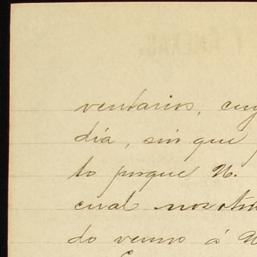 ventarios, cuy
día, sin que
to porque U.
cual nosotro
do vemos á U